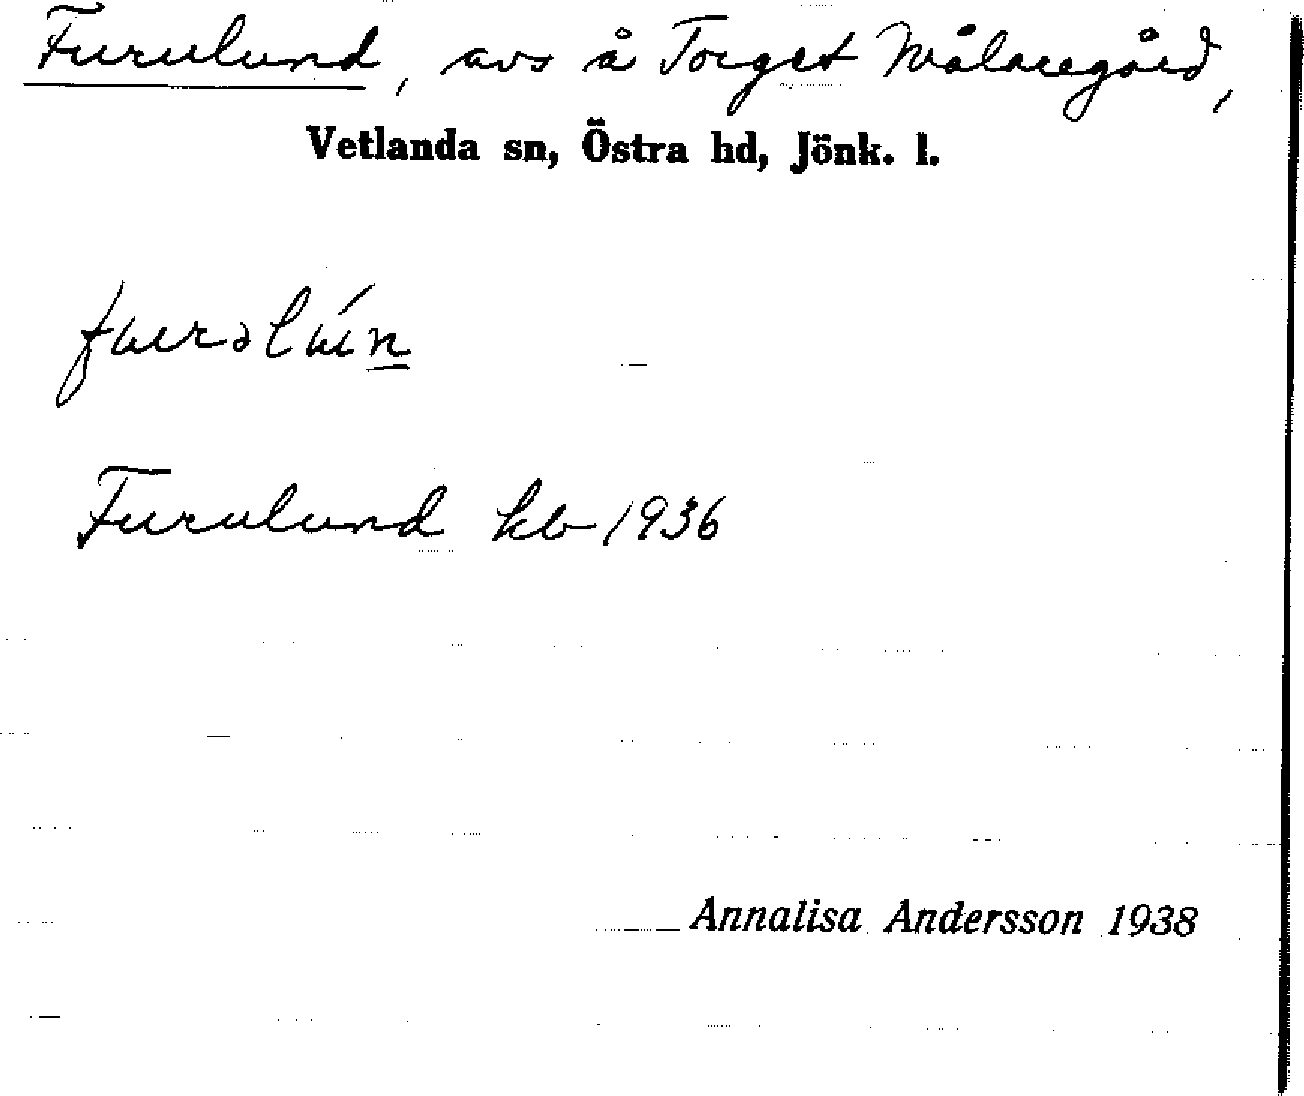 Furulund, avs å Torget Målaregård,
Vetlanda sn, Östra hd, Jönk. l.
Furulund kb 1936
Annalisa Andersson 1938